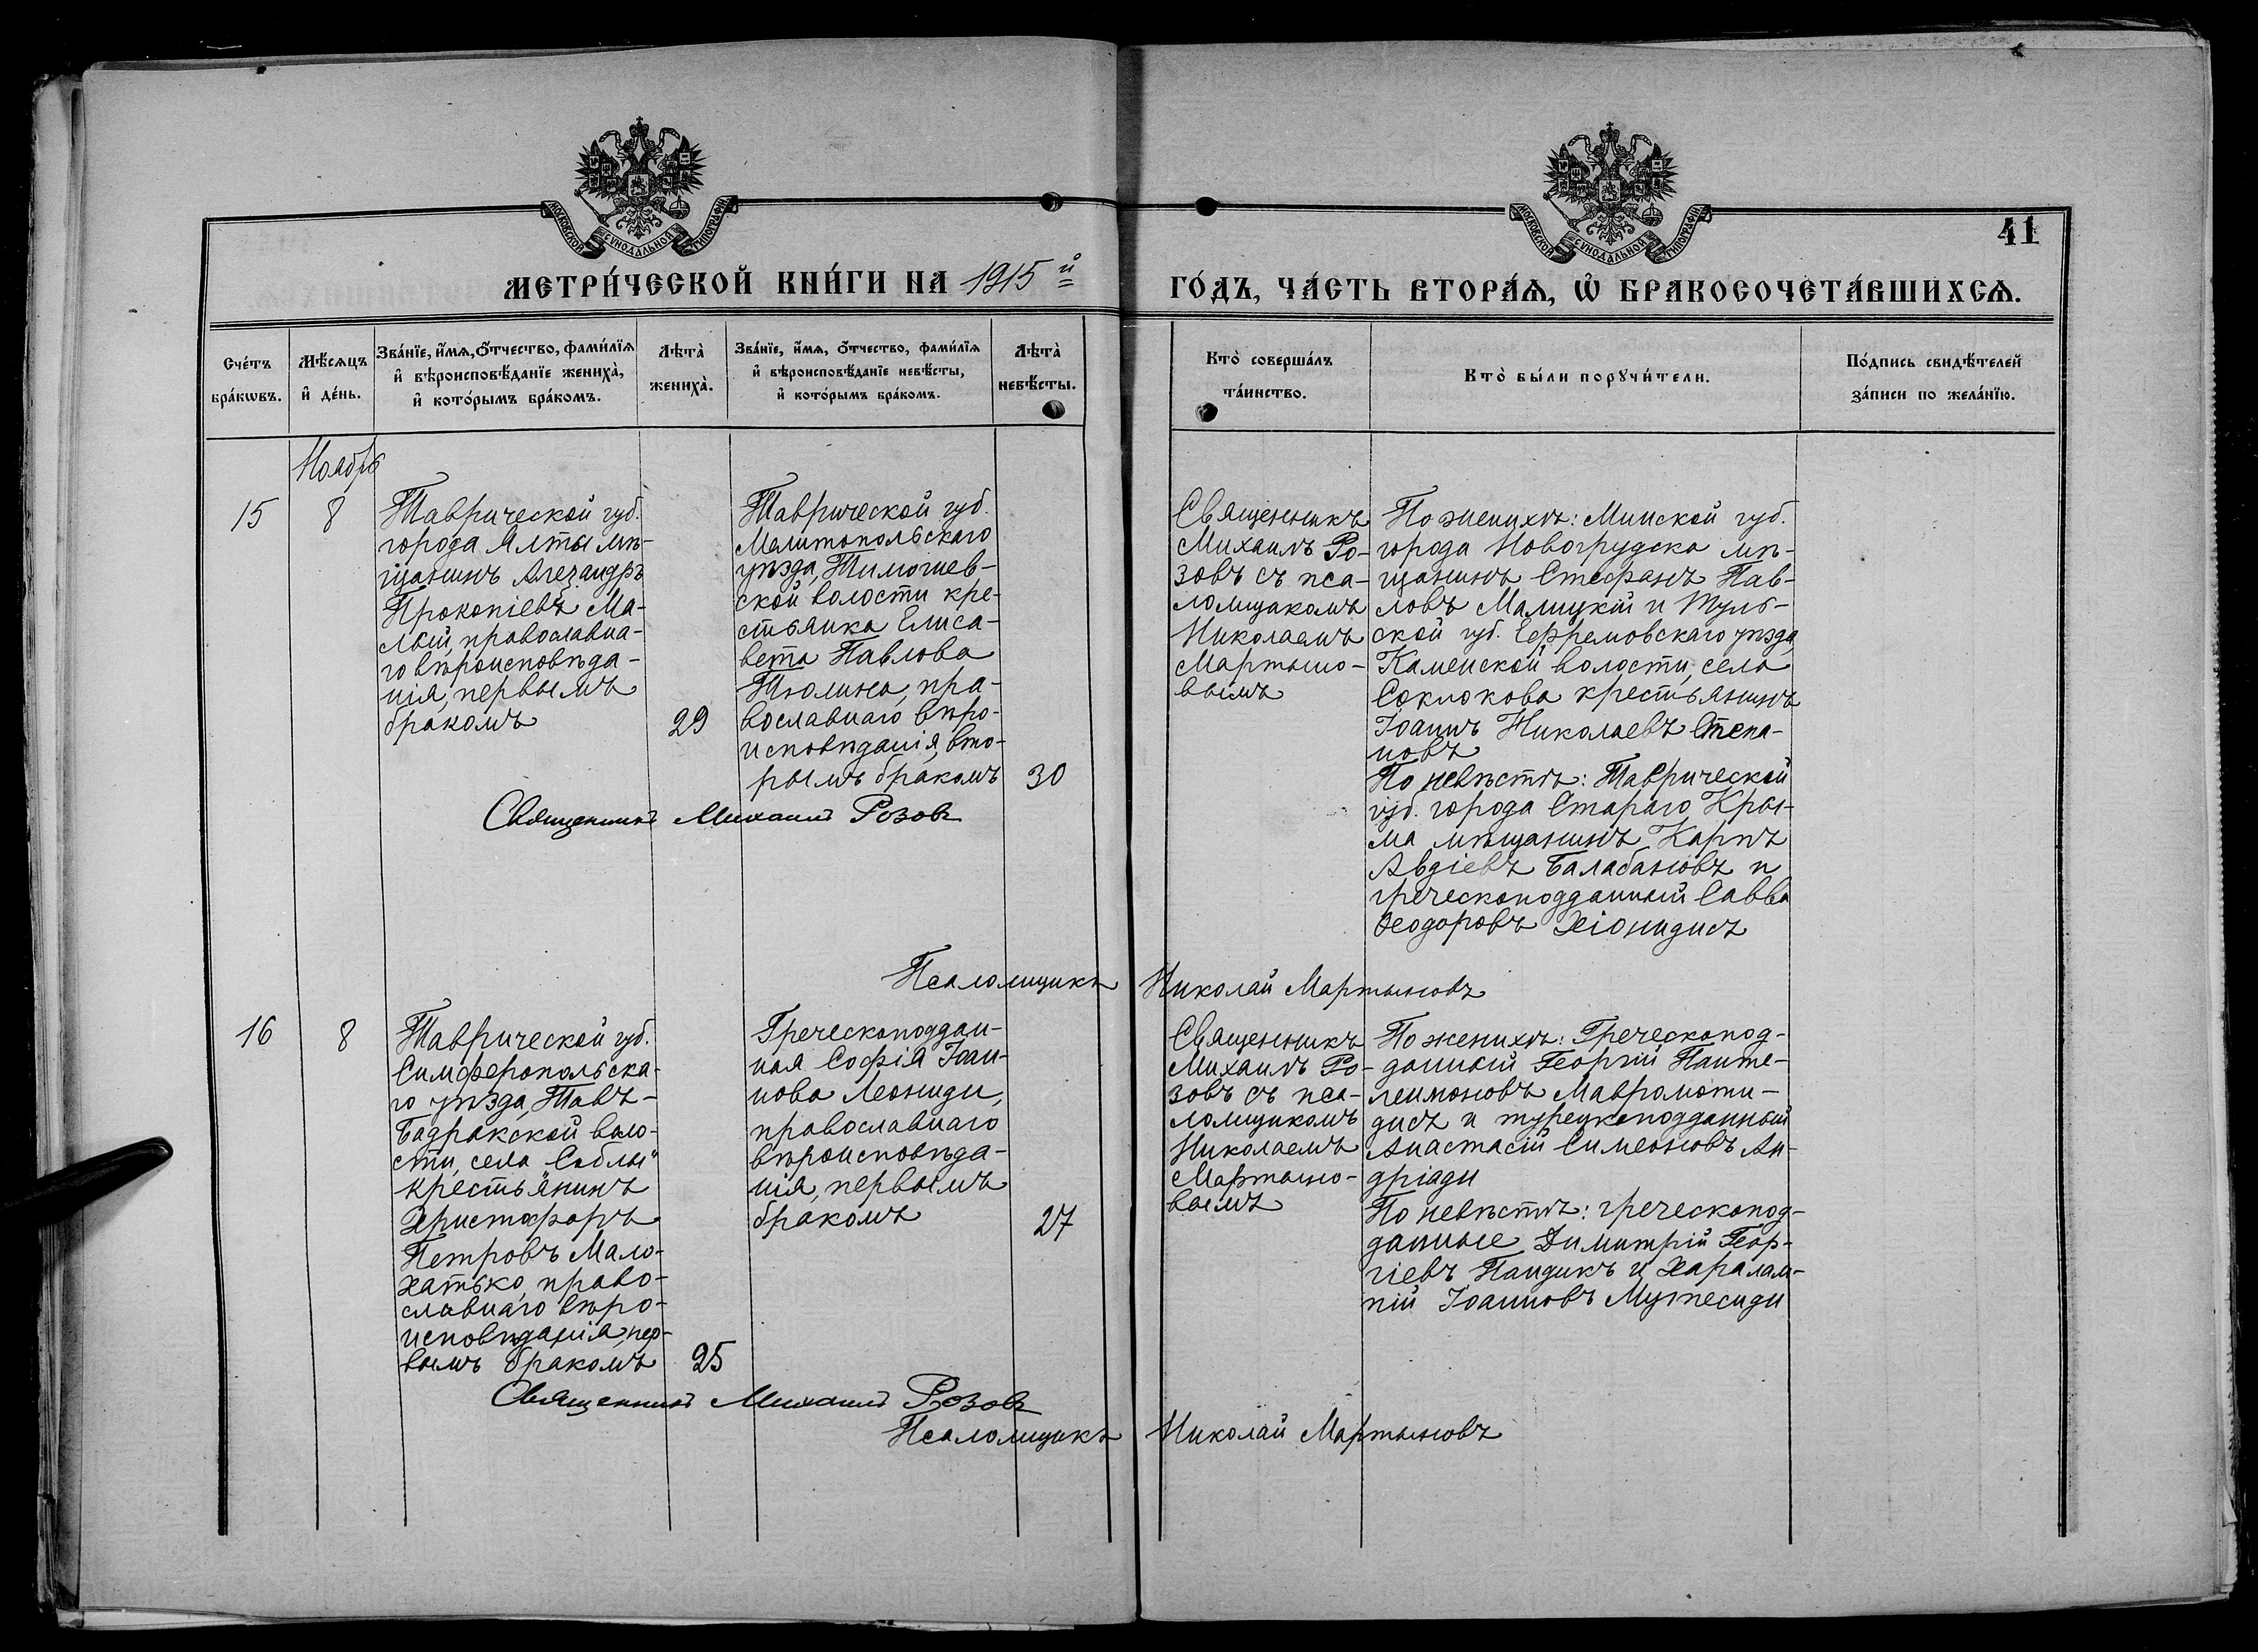 МОСКОВСКОЙ СѴНОДАЛЬНОЙ ТИПОГРАФІИ
МОСКОВСКОЙ СѴНОДАЛЬНОЙ ТИПОГРАФІИ
41
МЕТРИ́ЧЕСКОЙ КНИ́ГИ НА 1915й
ГО́ДЪ, ЧА́СТЬ ВТОРА́Ѧ, Ѡ҆ БРАКОСОЧЕТА́ВШИХСѦ.
Сче́тъ
бра́кѡвъ.
Мѣ́сѧцъ
и҆ де́нь.
Зва́нїе, и҆́мѧ, ѻ҆́тчество, фами́лїѧ
и҆ вѣроисповѣ́данїе жениха̀,
и҆ кото́рымъ бра́комъ.
Лѣта̀
жениха̀.
Зва́нїе, и҆́мѧ, ѻ҆́тчество, фами́лїѧ
и҆ вѣроисповѣ́данїе невѣ́сты,
и҆ кото́рымъ бра́комъ.
Лѣта̀
невѣ́сты.
Кто̀ соверша́лъ
та́инство.
Кто̀ бы́ли порꙋчи́тели.
По́дпись свидѣ́телей
за́писи по жела́нїю.
Ноября
15
8
Таврической губ.
города Ялты мѣ-
щанинъ Алезандръ
Прокопіевъ Ма-
лый, православна-
го вѣроисповѣда-
нія, первымъ
бракомъ
29
Таврической губ.
Мелитопольскаго
уѣзда, Тимошев-
ской волости кре-
стьянка Елиса-
вета Павлова
Тюлина, пра-
вославнаго вѣро-
исповѣданія, вто-
рымъ бракомъ
30
Священникъ Михаилъ Розовъ
Священникъ
Михаилъ Ро-
зовъ съ пса-
ломщикомъ
Николаемъ
Мартыно-
вымъ
По женихѣ: Минской губ.
города Новогрудска мѣ-
щанинъ Стефанъ Пав-
ловъ Малицкій и Туль-
ской губ. Ефремовскаго уѣзда
Каменской волости, села
Соклокова крестьянинъ
Іоаннъ Николаевъ Степа-
новъ
По невѣстѣ: Таврической
губ. города Стараго Кры-
ма мѣщанинъ Карпъ
Авдіевъ Балабановъ и
греческоподданный Савва
Ѳеодоровъ Хіонидисъ
Псаломщикъ Николай Мартыновъ
16
8
Таврической губ.
Симферопольска-
го уѣзда, Тавъ-
Бадракской воло-
сти, села Саблы
крестьянинъ
Христофоръ
Петровъ Мало-
хатько, право-
славнаго вѣро-
исповѣданія, пер-
вымъ бракомъ
25
Греческоподдан-
ная Софія Іоан-
нова Леониди,
православнаго
вѣроисповѣда-
нія, первымъ
бракомъ
27
Священникъ
Михаилъ Ро-
зовъ съ пса-
ломщикомъ
Николаемъ
Мартыно-
вымъ
По женихѣ: Греческопод-
данный Георгій Панте-
леимоновъ Мавромати-
дисъ и турецкоподданный
Анастасій Симеоновъ Ан-
дріади
По невѣстѣ: греческопод-
данные Димитрій Геор-
гіевъ Пандикъ и Харалам-
пій Іоанновъ
Священникъ Михаилъ Розовъ
Псаломщикъ Николай Мартыновъ